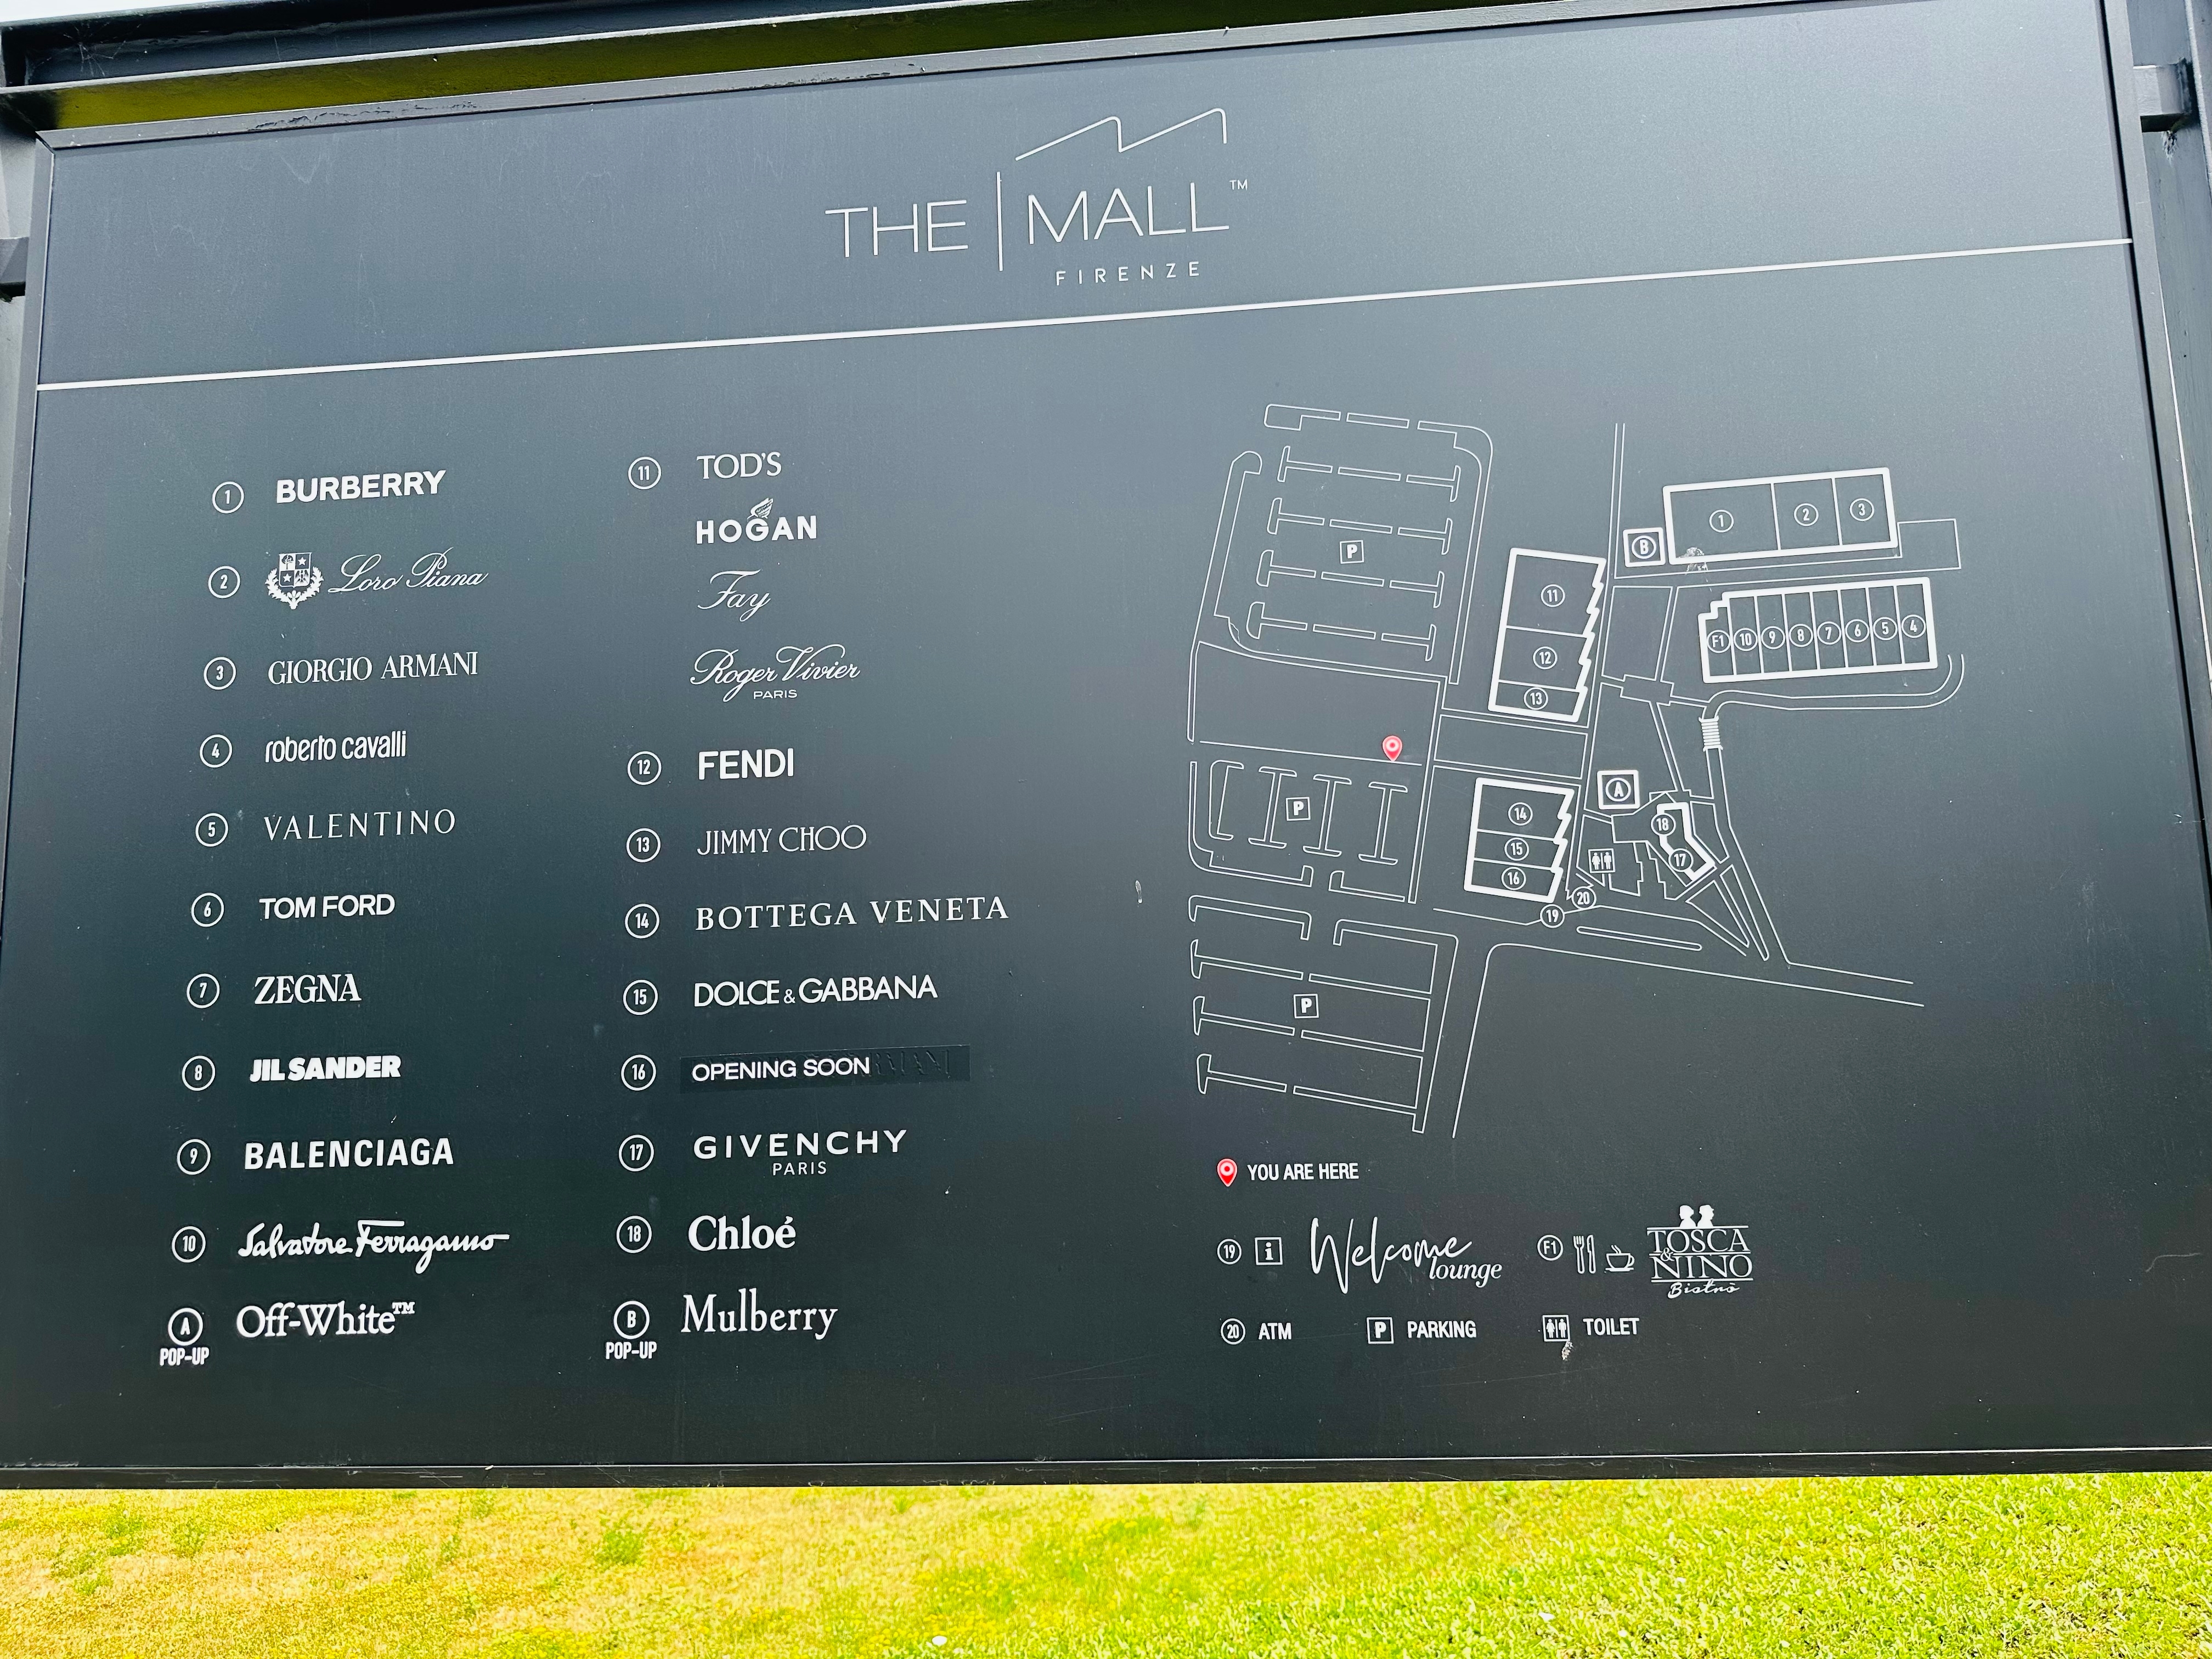 THE MALL™
FIRENZE
1 BURBERRY
2 Loro Piana
3 GIORGIO ARMANI
4 roberto cavalli
5 VALENTINO
6 TOM FORD
7 ZEGNA
8 JIL SANDER
9 BALENCIAGA
10 Salvatore Ferragamo
A Off-White™
POP-UP
11 TOD'S
HOGAN
Fay
Roger Vivier
PARIS
12 FENDI
13 JIMMY CHOO
14 BOTTEGA VENETA
15 DOLCE & GABBANA
16 OPENING SOON
17 GIVENCHY
PARIS
18 Chloé
B Mulberry
POP-UP
1 2 3
B
P
11
F1 10 9 8 7 6 5 4
12
13
A
P
14
18
15
17
16
20
19
P
YOU ARE HERE
19 i Welcome lounge
F1 TOSCA & NINO Bistrò
20 ATM
P PARKING
TOILET